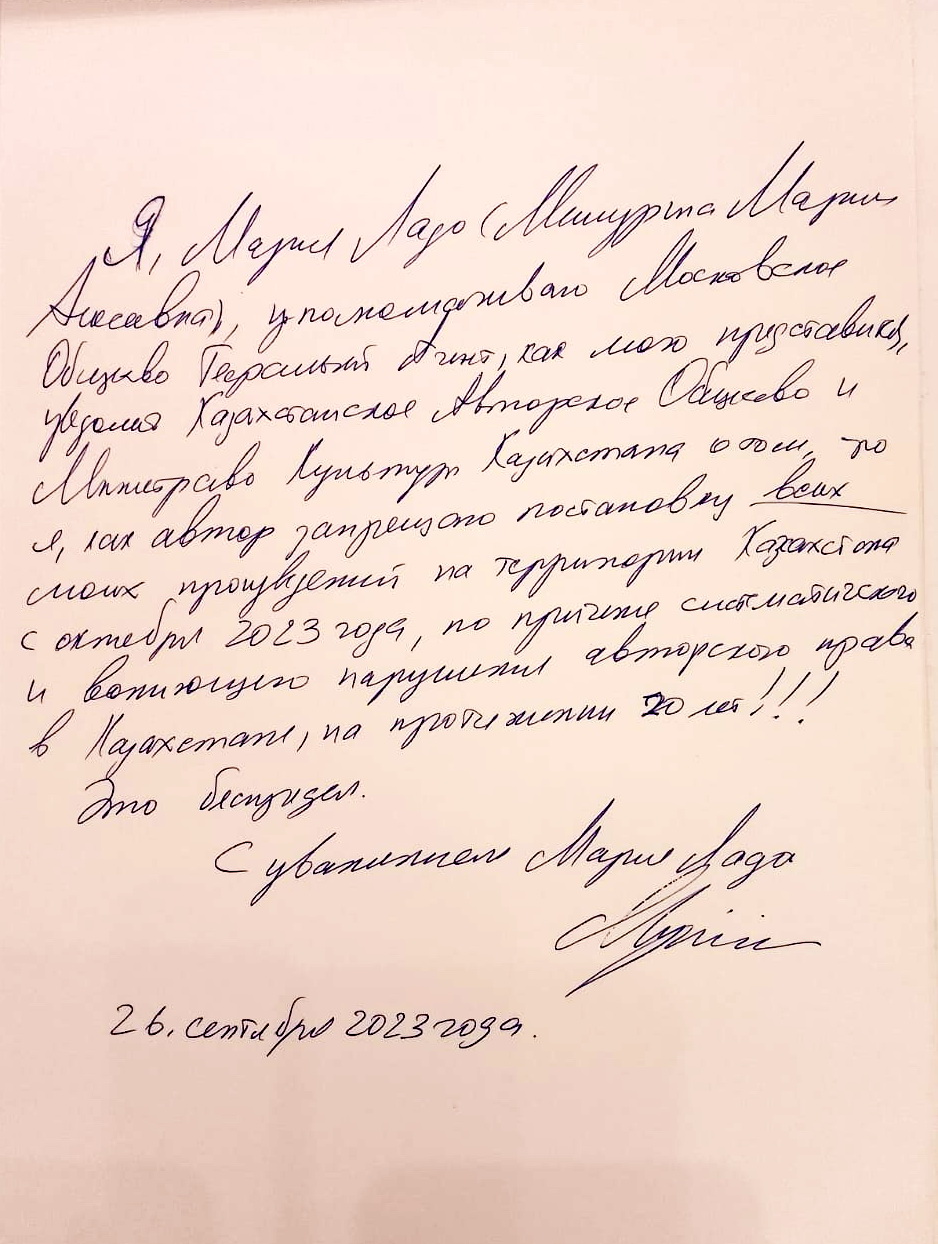 Я, Мария Ладо (Мария
уполномачиваю Московское
Общество Театральный Агент, как мого представителя,
уведомить Казахстанское Авторское Общество и
Министерство Культуры Казахстана о том, что
я, как автор запрещаю постановку всех
моих произведений на территории Казахстана
с октября 2023 года, по причине систематического
и вопиющего нарушения авторского права
в Казахстане, на протяжении 20 лет!!!
Это беспредел.
С уважением Мария Ладо
26. сентября 2023 года.